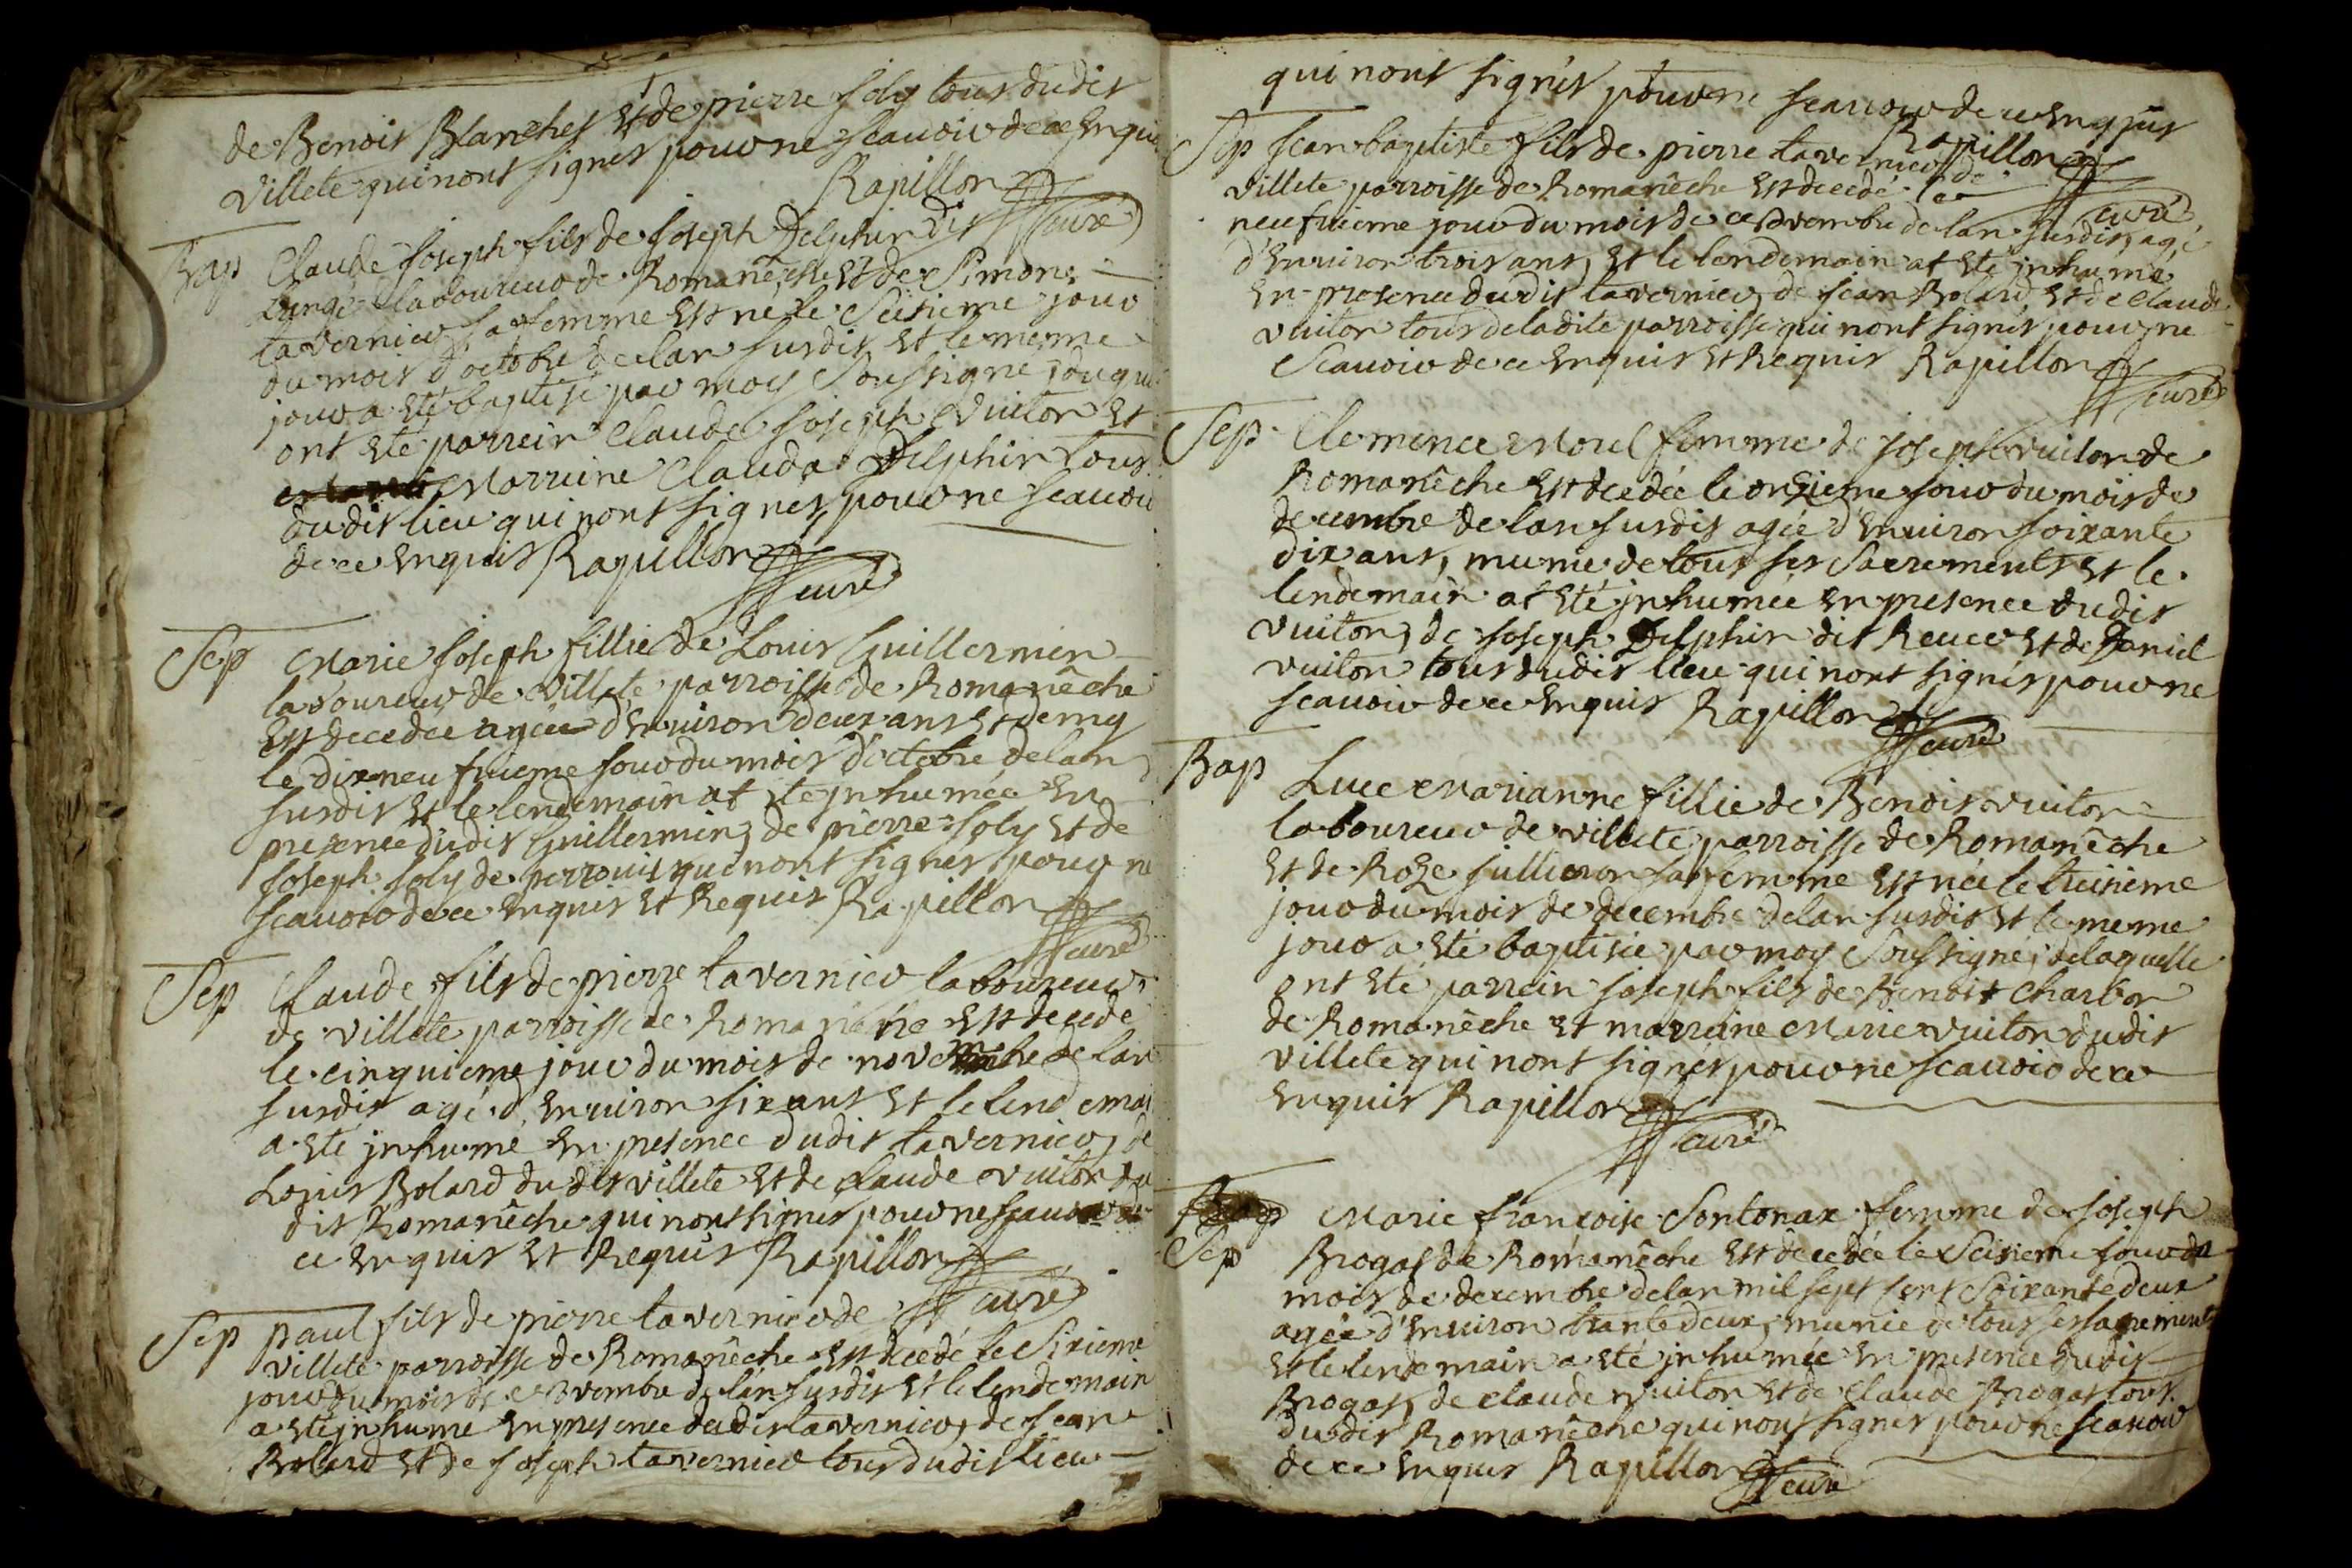 de Benoit Blanchet et de pierre Joly tous dudit
villete qui nont signés pour ne scauoir de ce enquis
Rapillon curé
Bap Claude Joseph fils de Joseph Delphin dit
laboureur de Romanêche et de Simone
tavernier sa femme est né le Seisieme jour
du mois d'octobre de lan susdit et le meme
jour a eté baptisé par moy Soussigné, duquel
ont eté parrein Claude Joseph Vuiton et
Marreine Clauda Delphin tous
dudit lieu qui nont signes pour ne scauoir
de ce enquis Rapillon curé
Sep Marie Joseph fillie de Louis Guillermin
laboureur de villete parroisse de Romanêche
est decedée agée d'enuiron deux ans et demy
le dixneufuieme jour du mois d'octobre de lan
susdit et le lendemain at eté jnhumée en
presence dudit Guillermin, de pierre Joly et de
Joseph Joly de perrouis qui nont signes pour ne
scauoir de ce enquis et Requis Rapillon curé
Sep Claude fils de pierre tavernier laboureur
de villete parroisse de Romanêche est decedé
le cinquieme jour du mois de novembre de lan
susdit agé d'enuiron six ans et le lendemai
a eté jnhumé en presence dudit tavernier, de
Louis Bolard dudit villete et de Claude vuiton du
dit Romanêche qui nont signes pour ne scauoir de
ce enquis et Requis Rapillon curé
Sep paul fils de pierre tavernier de
villete parroisse de Romanêche est decedé le Sixieme
jour du mois de Novembre de lan susdit et le lendemain
a eté jnhumé en presence dudit tavernier, de Jean
Bolard et de Joseph tavernier tous dudit lieu
qui nont signés pour ne scauoir de ce enquis
Rapillon curé
Sep Jean baptiste fils de pierre tavernier de
villete parroisse de Romanêche est decedé le
neufuieme jour du mois de Novembre de lan susdit, agé
d'enuiron trois ans, et le lendemain at eté jnhumé
en presence dudit tavernier, de Jean Bolard et de Claude
vuiton tous de ladite parroisse qui nont signés pour ne
Scauoir de ce enquis et Requis Rapillon curé
Sep Clemence Morel femme de Joseph vuiton de
Romanêche est decedée le onzieme jour du mois de
decembre de lan susdit agée d'enuiron soixante
dix ans, munie de tous ses Sacrements et le
lendemain at eté jnhumée en presence dudit
vuiton, de Joseph Delphin dit Reuer et de Daniel
vuiton tous dudit lieu qui nont signés pour ne
scauoir de ce enquis Rapillon curé
Bap Luce Marianne fillie de Benoit vuiton
laboureur de villete parroisse de Romanêche
et de Roze Jullieron sa femme est née le treisieme
jour du mois de decembre de lan susdit et le meme
jour a eté baptisée par moy Soussigné, de laquelle
ont eté parrein Joseph fils de Benoit Charbon
de Romanêche et marreine Marie vuiton dudit
villete qui nont signes pour ne scauoir de ce
enquis Rapillon curé
Sep Marie francoise Sontonax femme de Joseph
Brogas de Romanêche est decedée le Seisieme jour du
mois de decembre de lan mil sept cent Soixante deux
agée d'enuiron trante deux, munie de tous ses sacrements
et le lendemain a eté jnhumée en presence dudit
Brogas, de claude vuiton et de Claude Brogas tous
dudit Romanêche qui nont signes pour ne scauoir
de ce enquis Rapillon curé